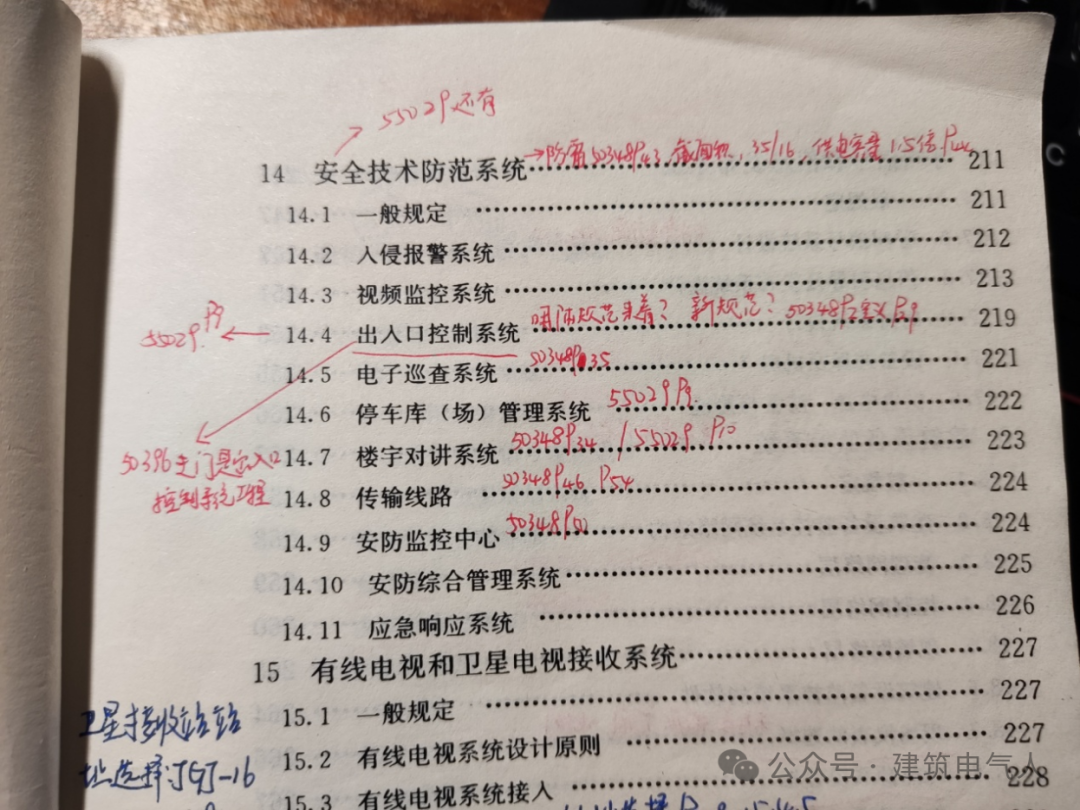 55029还有
14 安全技术防范系统 →防雷50348P43 截面积，35/16，供电容量1.5倍 211
14.1 一般规定 211
14.2 入侵报警系统 212
14.3 视频监控系统 213
55029P9 ← 14.4 出入口控制系统 新规范？50348P2定义P9 219
14.5 电子巡查系统 50348P35 221
14.6 停车库（场）管理系统 55029P9. 222
14.7 楼宇对讲系统 50348P34 / 55029 P10 223
50396 出入口
控制系统工程
14.8 传输线路 50348P46 P54 224
14.9 安防监控中心 50348P50 224
14.10 安防综合管理系统 225
14.11 应急响应系统 226
15 有线电视和卫星电视接收系统 227
卫星接收站站
址选择JGJ-16
15.1 一般规定 227
15.2 有线电视系统设计原则 227
15.3 有线电视系统接入 228
公众号·建筑电气人